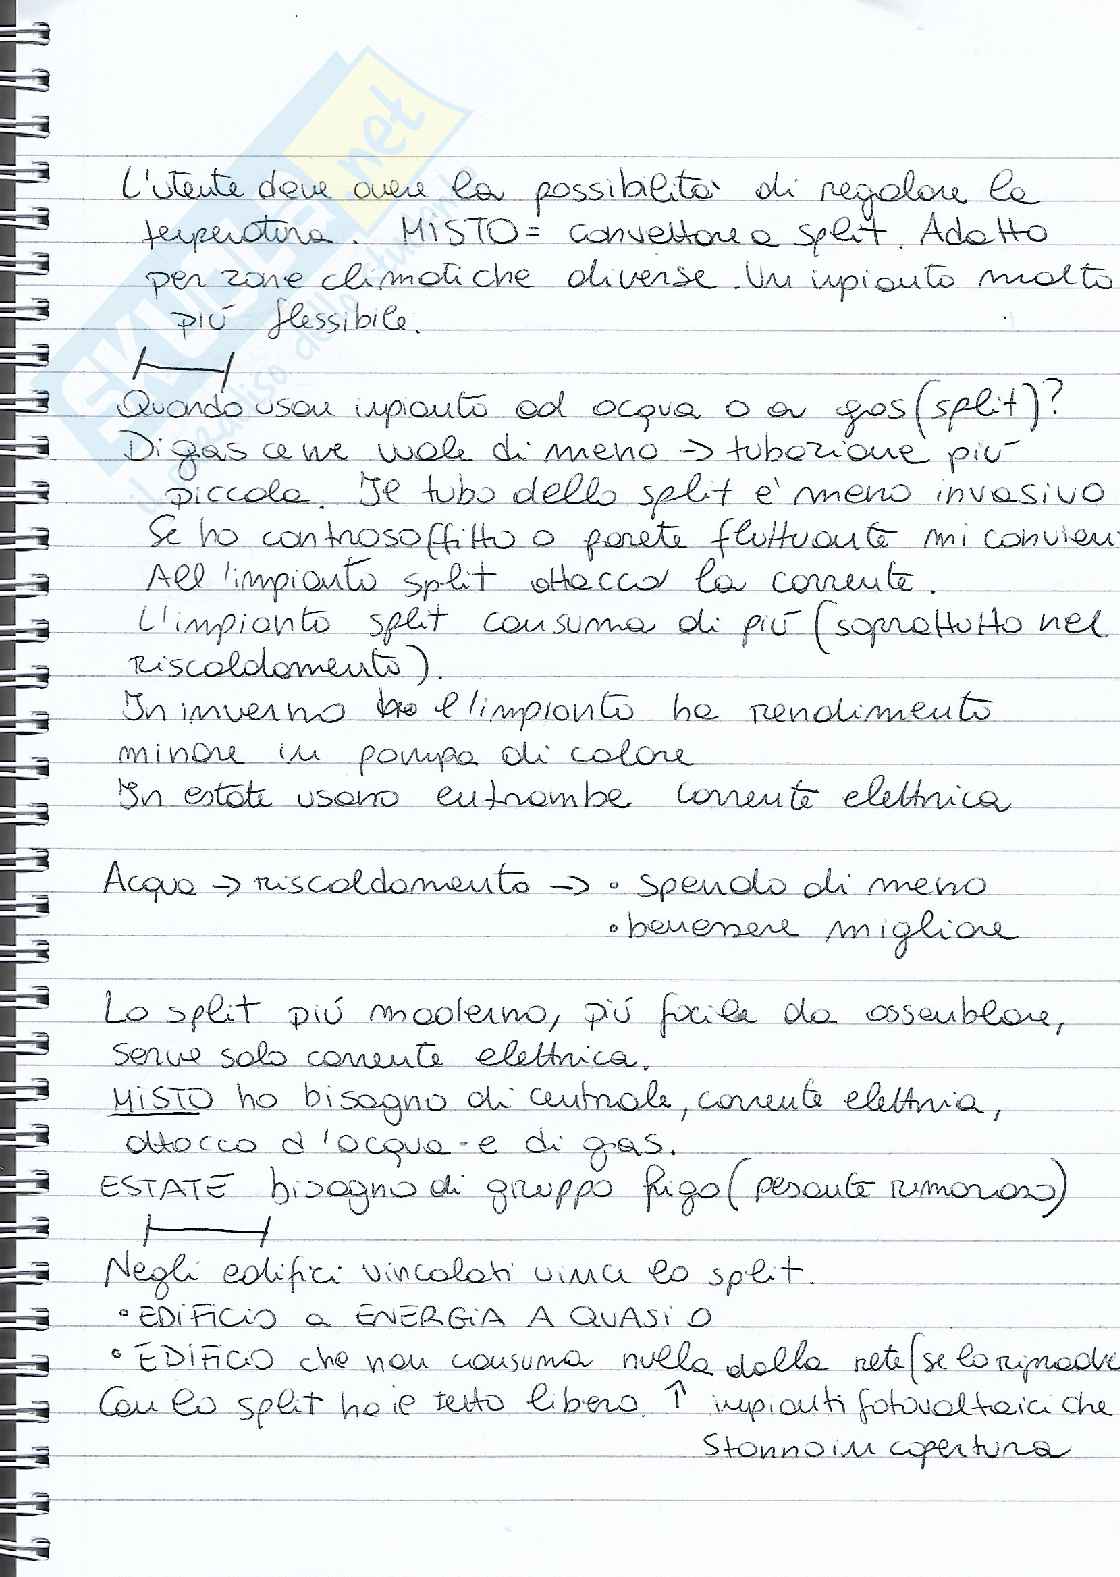 SKUOLA.net
L'utente deve avere la possibilità di regolare la
temperatura. MISTO = convettore a split. Adatto
per zone climatiche diverse. Un impianto molto
più flessibile.
Quando usau impianto ad acqua o a gas (split)?
Di gas ce ne vuole di meno → tubazione più
piccola. Il tubo dello split è meno invasivo
Se ho controsoffitto o parete fluttuante mi convien
All'impianto split attacco la corrente.
L'impianto split consuma di più (soprattutto nel
riscaldamento).
In inverno l'impianto ha rendimento
minore in pompa di calore
In estate usano entrambe corrente elettrica
Acqua → riscaldamento → • spendo di meno
• benessere migliore
Lo split più moderno, più facile da assemblare,
serve solo corrente elettrica.
MISTO ho bisogno di centrale, corrente elettria,
attacco d'acqua e di gas.
ESTATE bisogno di gruppo frigo (pesante rumoroso)
Negli edifici vincolati vince lo split.
• EDIFICIO a ENERGIA A QUASI 0
• EDIFICIO che non consuma nulla dalla rete (se lo
Con lo split ho il tetto libero. ↑ impianti fotovoltaici che
stanno in copertura